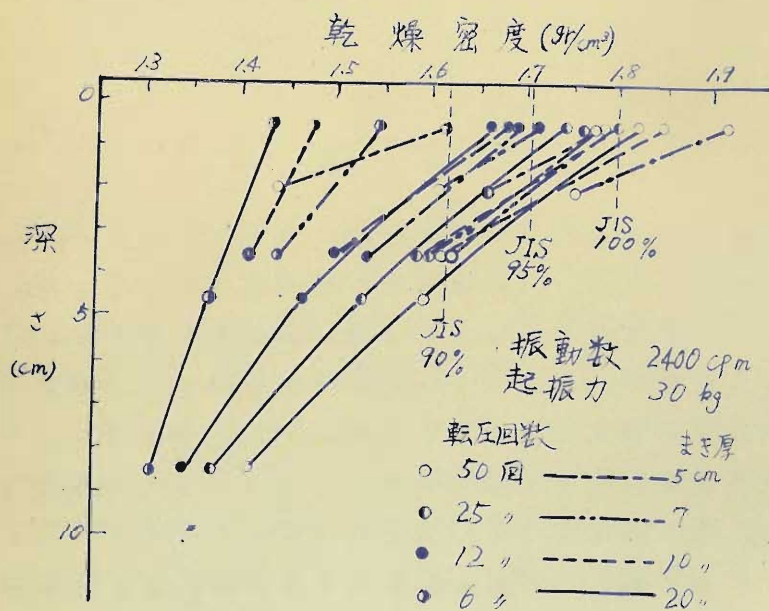 乾燥密度(gr/cm³)
1.3 1.4 1.5 1.6 1.7 1.8 1.9
0
深さ
(cm)
5
10
JIS
90%
JIS
95%
JIS
100%
振動数 2400 cpm
起振力 30 kg
転圧回数 まき厚
50回 5cm
25 〃 7
12 〃 10 〃
6 〃 20 〃